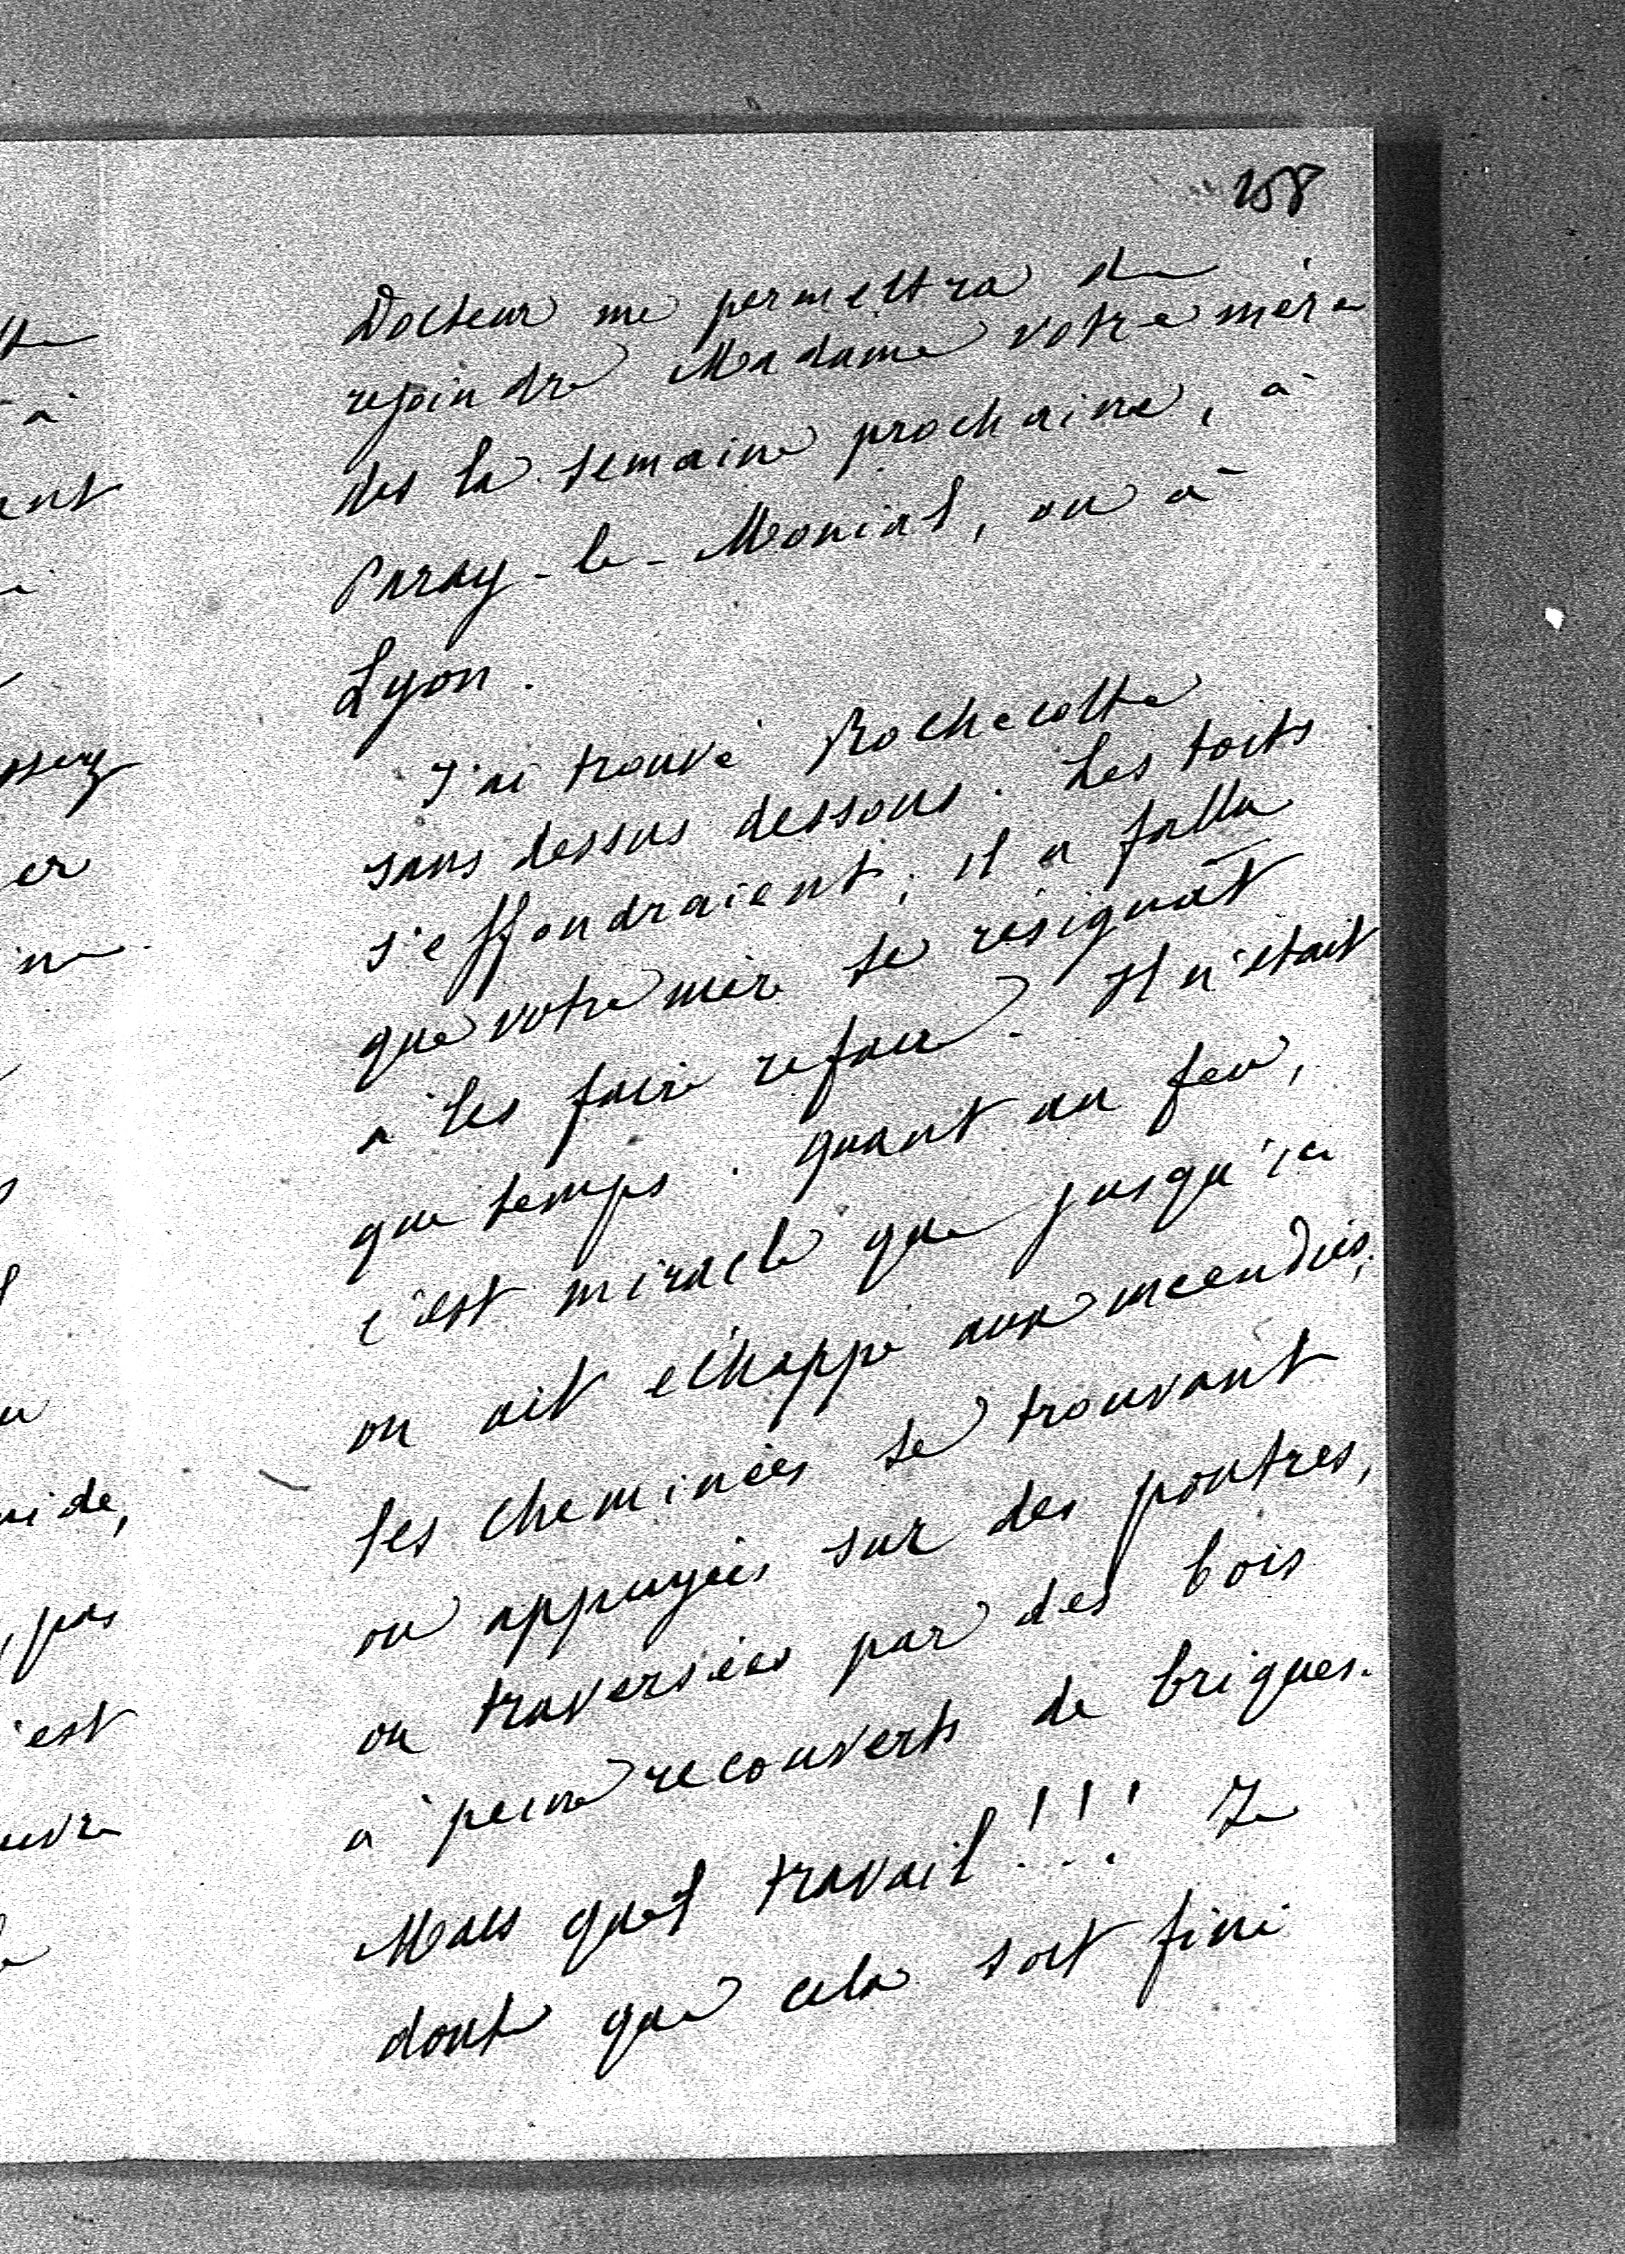 258
Docteur me permettra de
rejoindre Madame votre mère
dès la semaine prochaine, à
Paray-le-Monial, ou à
Lyon.
J'ai trouvé Rochecotte
sans dessus dessous. Les toits
s'effondraient; il a fallu
que votre mère se résignât
à les faire refaire. Il n'était
que temps. quant au feu,
c'est miracle que jusqu'ici
on ait échappé aux incendies;
les cheminées se trouvant
ou appuyées sur des poutres,
ou traversées par des bois
à peine recouverts de briques.
Mais quel travail!!! Je
doute que cela soit fini
à
ant
er
uide,
, pas
'est